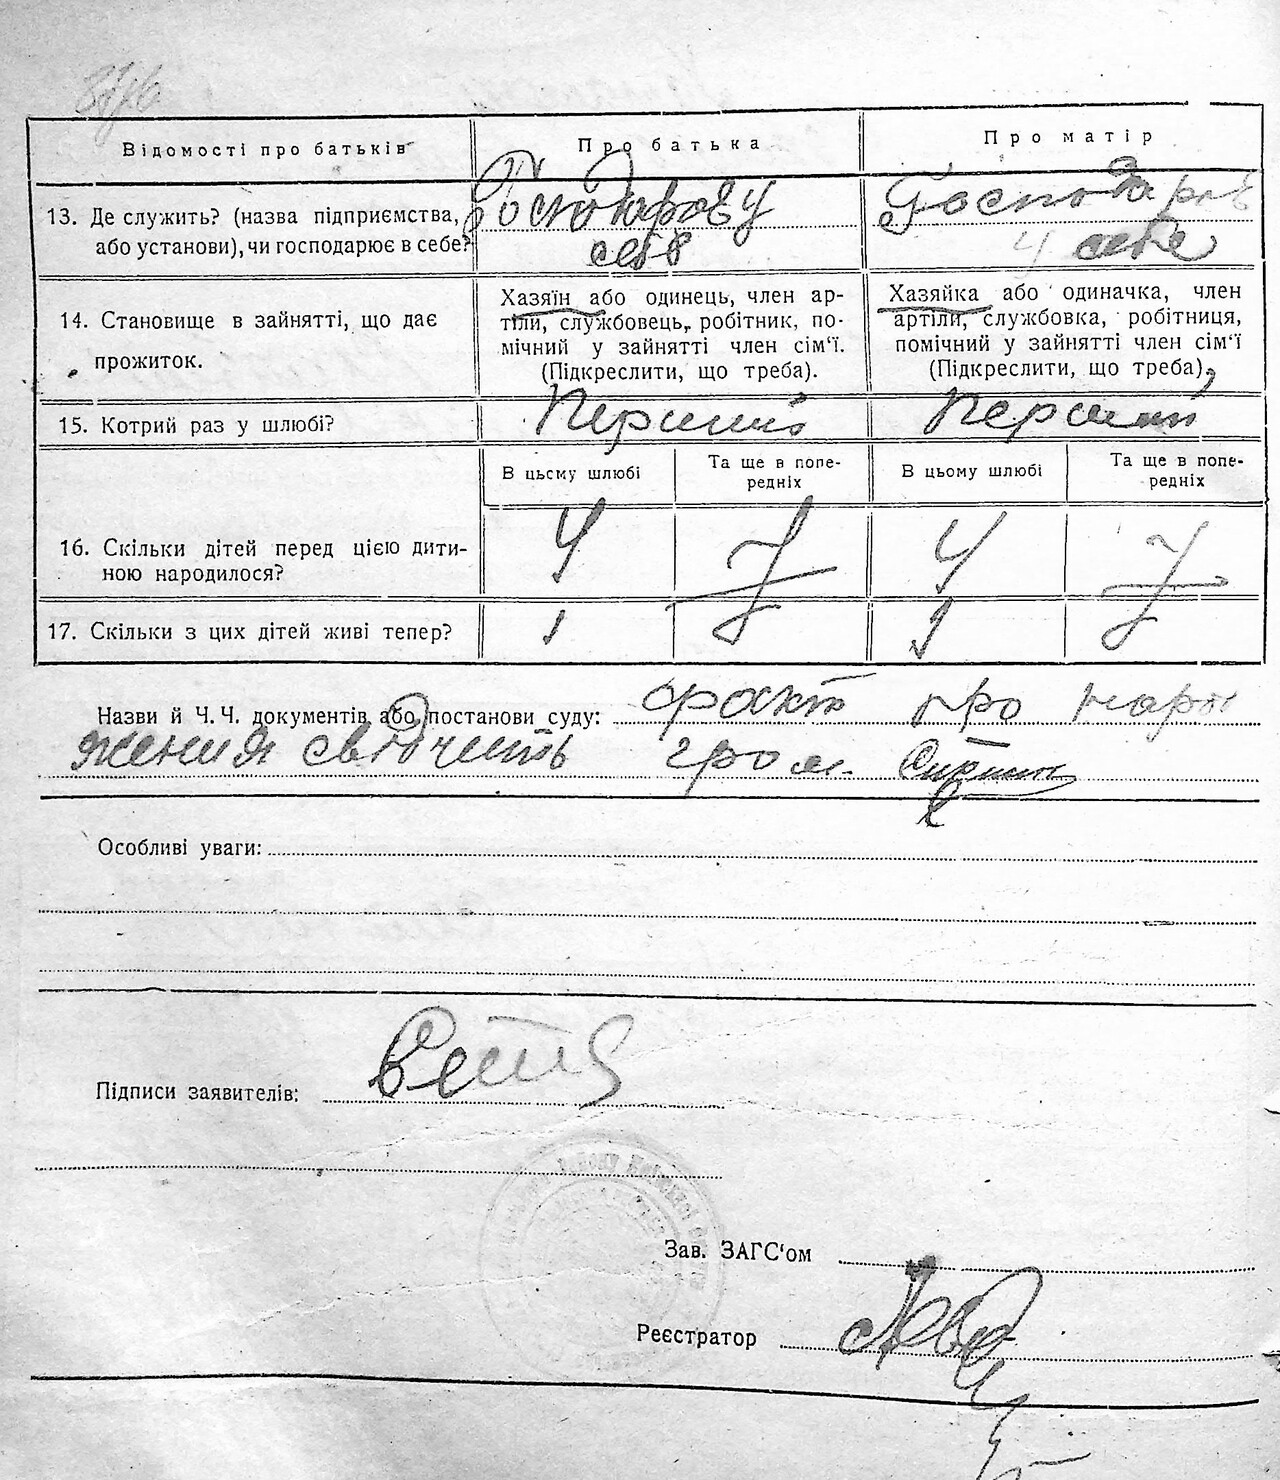 Відомості про батьків Про батька Про матір
13. Де служить? (назва підприємства, або установи), чи господарює в себе?
Господарює у
себе
Господарює
у себе
14. Становище в зайнятті, що дає
прожиток.
Хазяїн або одинець, член ар-
тіли, службовець, робітник, по-
мічний у зайнятті член сім'ї.
(Підкреслити, що треба).
Хазяйка або одиначка, член
артіли, службовка, робітниця,
помічний у зайнятті член сім'ї
(Підкреслити, що треба)
15. Котрий раз у шлюбі? Перший Перший
В цьому шлюбі Та ще в попе-
редніх В цьому шлюбі Та ще в попе-
редніх
16. Скільки дітей перед цією дити-
ною народилося? 4 4
17. Скільки з цих дітей живі тепер? 1 1
Назви й Ч. Ч. документів або постанови суду: факт про народ
ження свідчить гром.
Особливі уваги:
Підписи заявителів:
Зав. ЗАГС'ом
Реєстратор